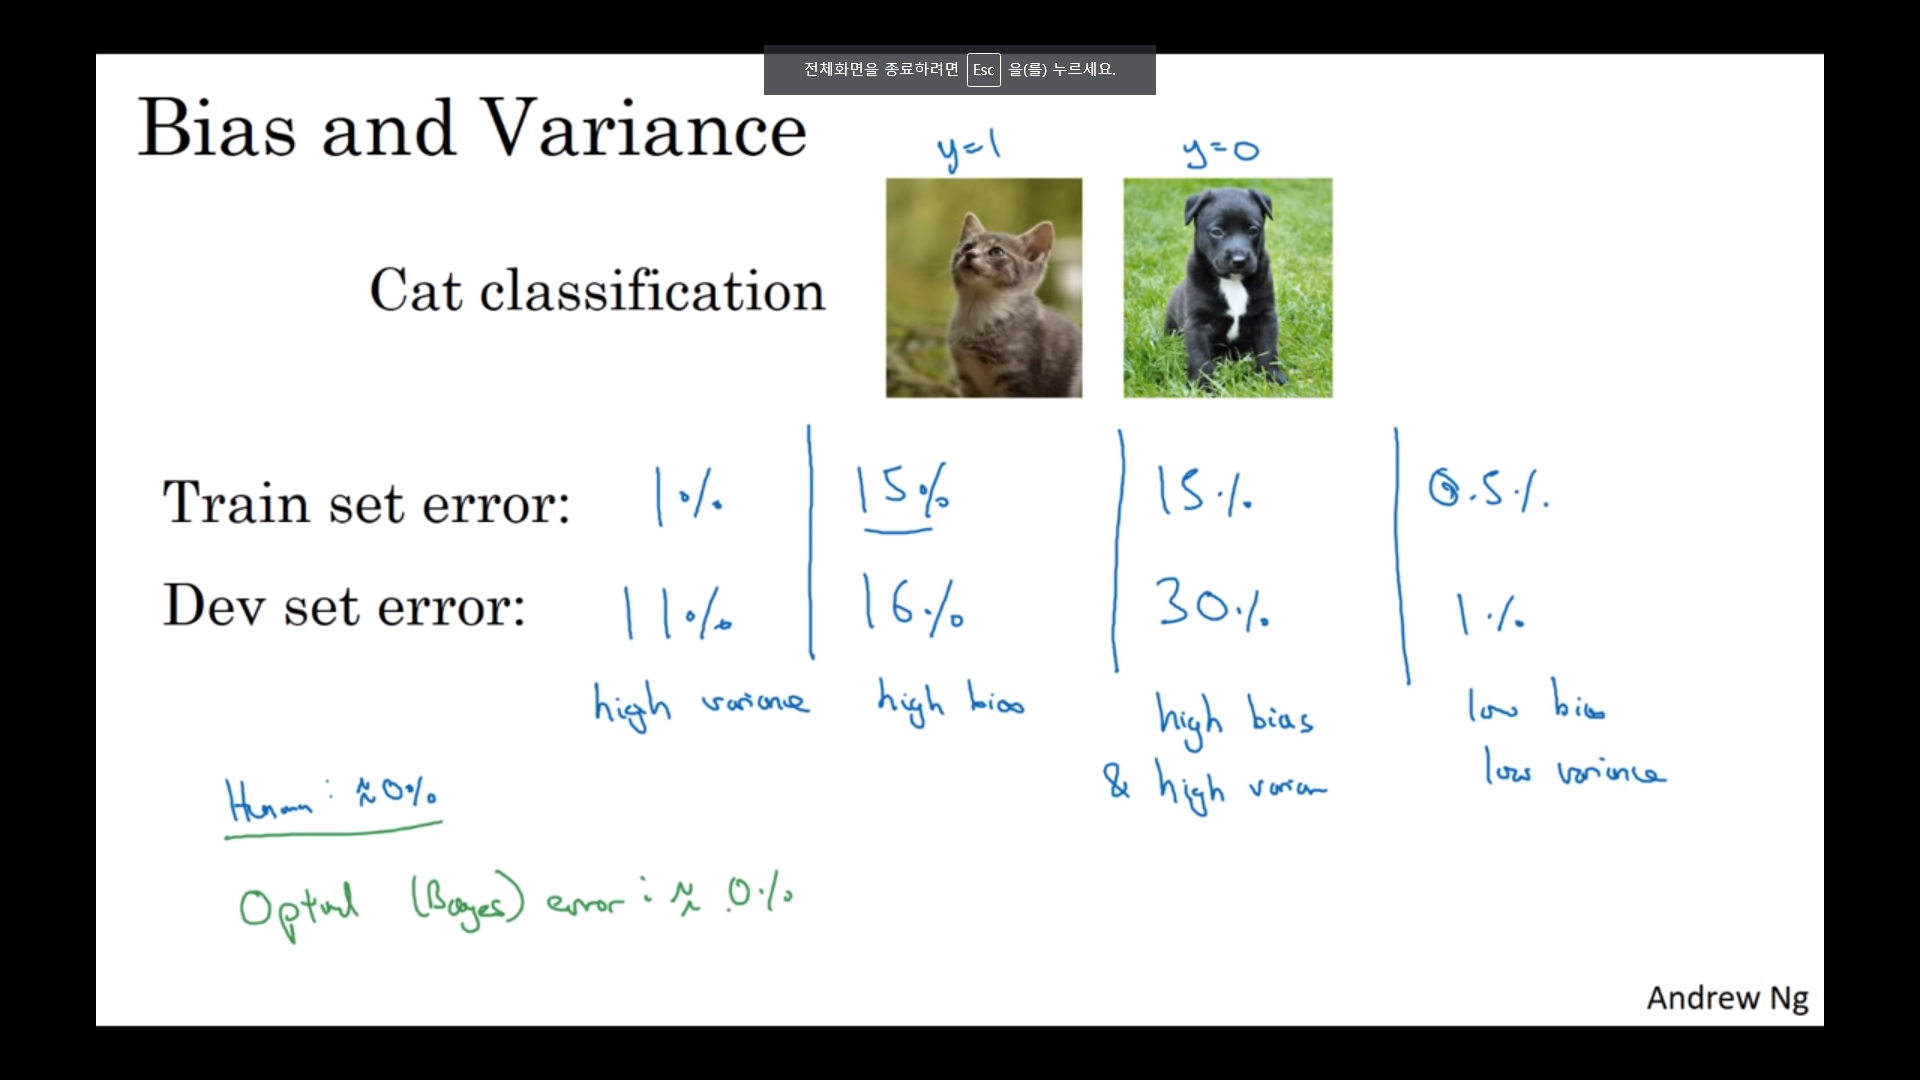 전체화면을 종료하려면 Esc 을(를) 누르세요.
Bias and Variance
y=1 y=0
Cat classification
Train set error: 1% 15% 15% 0.5%
Dev set error: 11% 16% 30% 1%
high variance high bias high bias low bias
& high varian low variance
Human: ≈0%
Optimal (Bayes) error: ≈ 0%
Andrew Ng